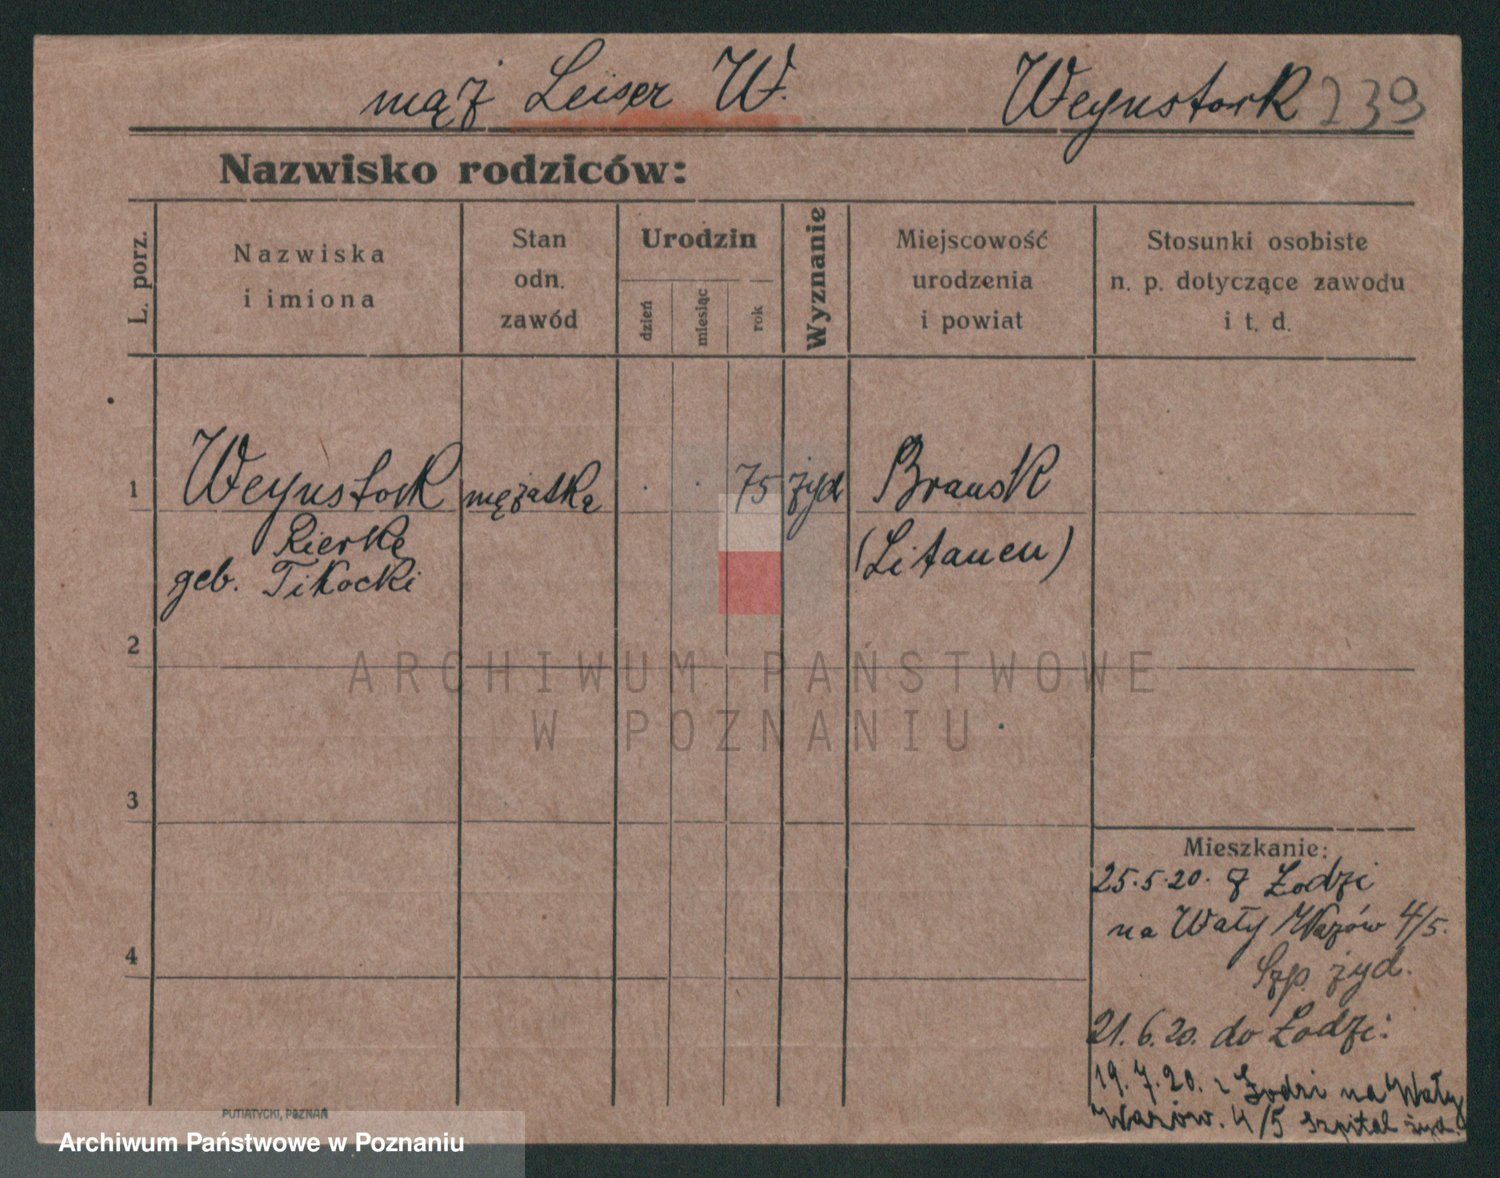 mąż Leiser W. Weynstork 239
Nazwisko rodziców:
L. porz.
Nazwiska
i imiona
Stan
odn.
zawód
Urodzin
dzień
miesiąc
rok
Wyznanie
Miejscowość
urodzenia
i powiat
Stosunki osobiste
n. p. dotyczące zawodu
i t. d.
1 Weynstork mężatka . . 75 żyd Bransk
Rierke (Litauen)
geb. Tikocki
2
ARCHIWUM PAŃSTWOWE
W POZNANIU
3
Mieszkanie:
25.5.20. z Łodzi
na Wały Wazów 4/5.
4
Szp. żyd.
21.6.20. do Łodzi:
19.7.20. z Łodzi na Wały
Wazów. 4/5 szpital żyd.
PUTIATYCKI, POZNAŃ
Archiwum Państwowe w Poznaniu